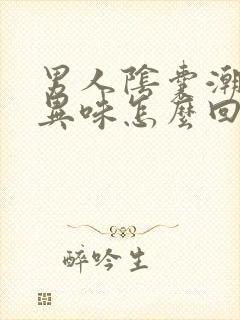 男人陰囊潮
異味怎麼回
醉吟生